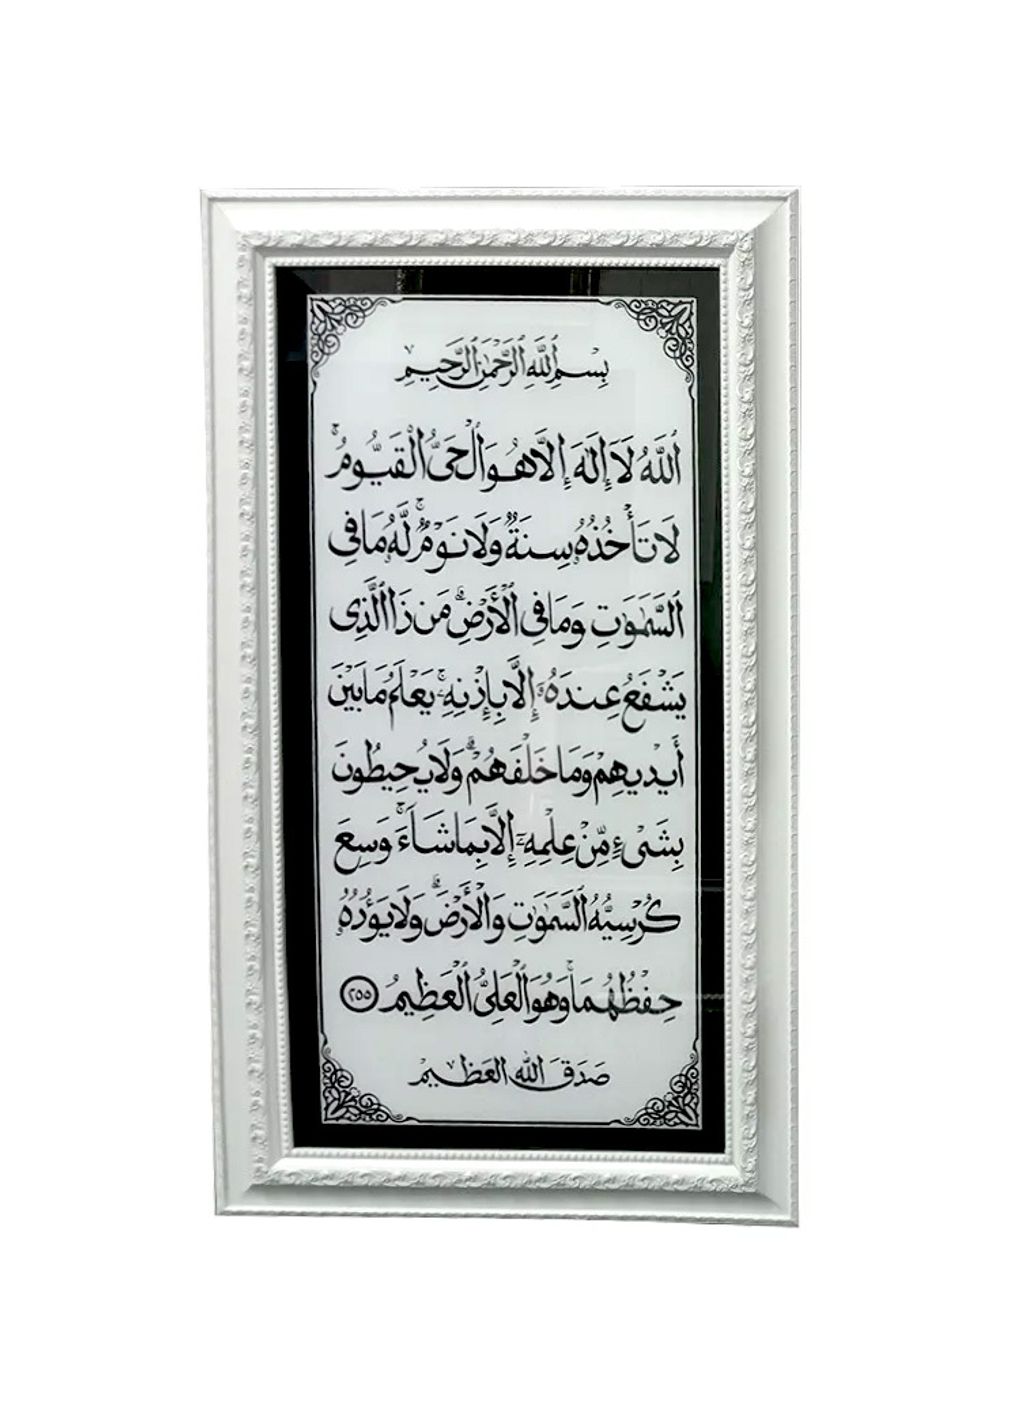 بِسْمِ ٱللَّهِ ٱلرَّحْمَٰنِ ٱلرَّحِيمِ
ٱللَّهُ لَآ إِلَٰهَ إِلَّا هُوَ ٱلْحَىُّ ٱلْقَيُّومُ ۚ
لَا تَأْخُذُهُۥ سِنَةٌ وَلَا نَوْمٌ ۚ لَّهُۥ مَا فِى
ٱلسَّمَٰوَٰتِ وَمَا فِى ٱلْأَرْضِ ۗ مَن ذَا ٱلَّذِى
يَشْفَعُ عِندَهُۥٓ إِلَّا بِإِذْنِهِۦ ۚ يَعْلَمُ مَا بَيْنَ
أَيْدِيهِمْ وَمَا خَلْفَهُمْ ۖ وَلَا يُحِيطُونَ
بِشَىْءٍ مِّنْ عِلْمِهِۦٓ إِلَّا بِمَا شَآءَ ۚ وَسِعَ
كُرْسِيُّهُ ٱلسَّمَٰوَٰتِ وَٱلْأَرْضَ ۖ وَلَا يَـُٔودُهُۥ
حِفْظُهُمَا ۚ وَهُوَ ٱلْعَلِىُّ ٱلْعَظِيمُ ٢٥٥
صَدَقَ الله العَظِيمْ